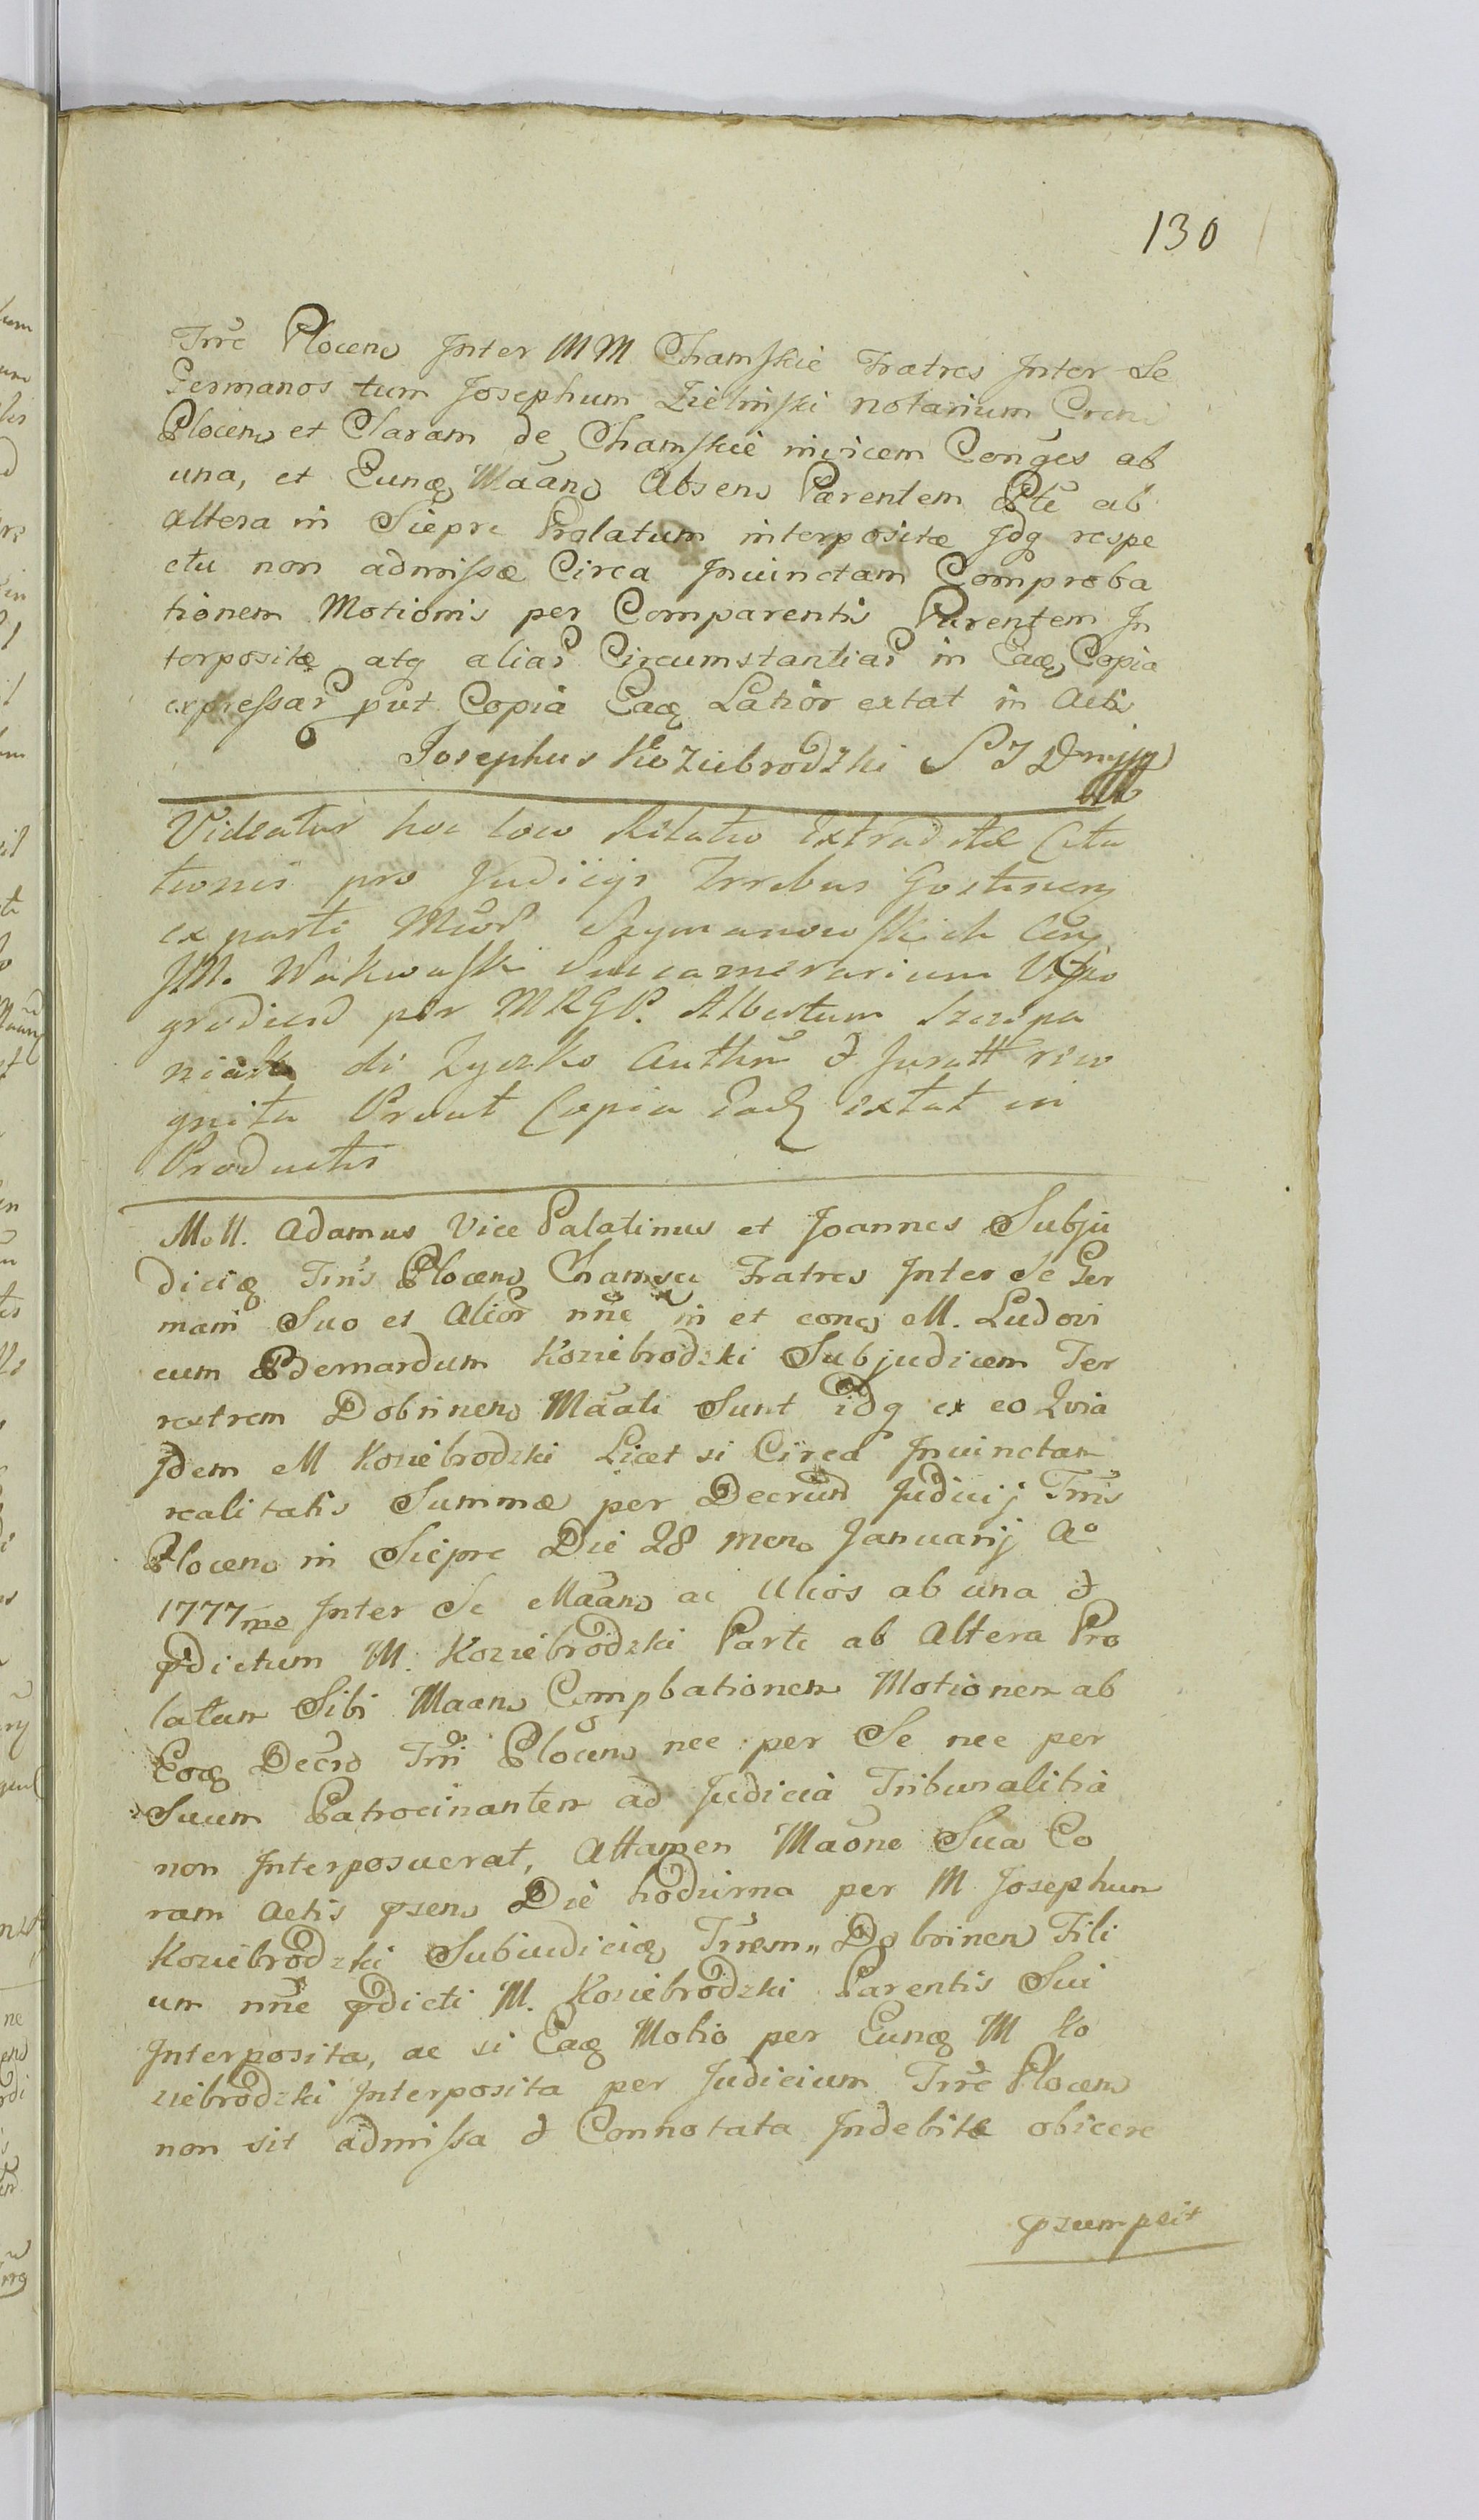 130
Trre Plocens Inter MM Chamskie Fratres Inter Se
Germanos tum Josephum Zielinski notarium
Plocens et Claram de Chamskie invicem Conges ab
una, et Eunq Maans Absens Parentem Pte ab
altera in Siepre Prolatum interpositæ Idq respe
ctu non admissæ Circa Invinctam Comproba
tionem Motionis per Comparentis Parentem In
terpositæ atq aliar Circumstantiar in Eaq Copia
expressar put Copia Eaq Latior extat in Actis
Josephus Koziebrodzki S J D
Videatur hoc loco Relatio Extraditæ Cita
tionis pro Judicijs Trrebus Gostinen
ex parte Mcor Szymanowskich Conj
JM. Wukwaski Succamerarium Viszo
grodien per MRGP. Albertum Szczepa
niak de Zyczko Authen d Juratt reco
gnita Prout Copia Eadq extat in
Productis
M. M. Adamus Vice Palatinus et Joannes Subju
diciq Trris Plocens Chamscy Fratres Inter Se Ger
mani Suo et Alior nne in et cones M. Ludovi
cum Bernardum Koziebrodzki Subjudicem Ter
restrem Dobrinens Maati Sunt idq ex eo Quia
Idem M Koziebrodzki Licet si Circa Invinctam
realitatis Summæ per Decrum Judicij Trris
Plocens in Siepre Die 28 mens Januarij Ao
1777mo Inter Se Maans ac Alios ab una d
pdictum M. Koziebrodzki Parte ab Altera Pro
latum Sibi Maans Compbationem Motionem ab
Eoq Decro Trri Plocens nec per Se nec per
Suum Patrocinantem ad Judicia Tribunalitia
non Interposuerat, Attamen Maone Sua Co
ram Actis psens Die hodierna per M Josephum
Koziebrodzki Subiudiciq Trrem Dobrinens Fili
um nne pdicti M. Koziebrodzki Parentis Sui
Interposita, ac si Eaq Motio per Eunq M Ko
ziebrodzki Interposita per Judicium Trre Plocens
non sit admissa d Connotata Indebite obicere
psumpsit